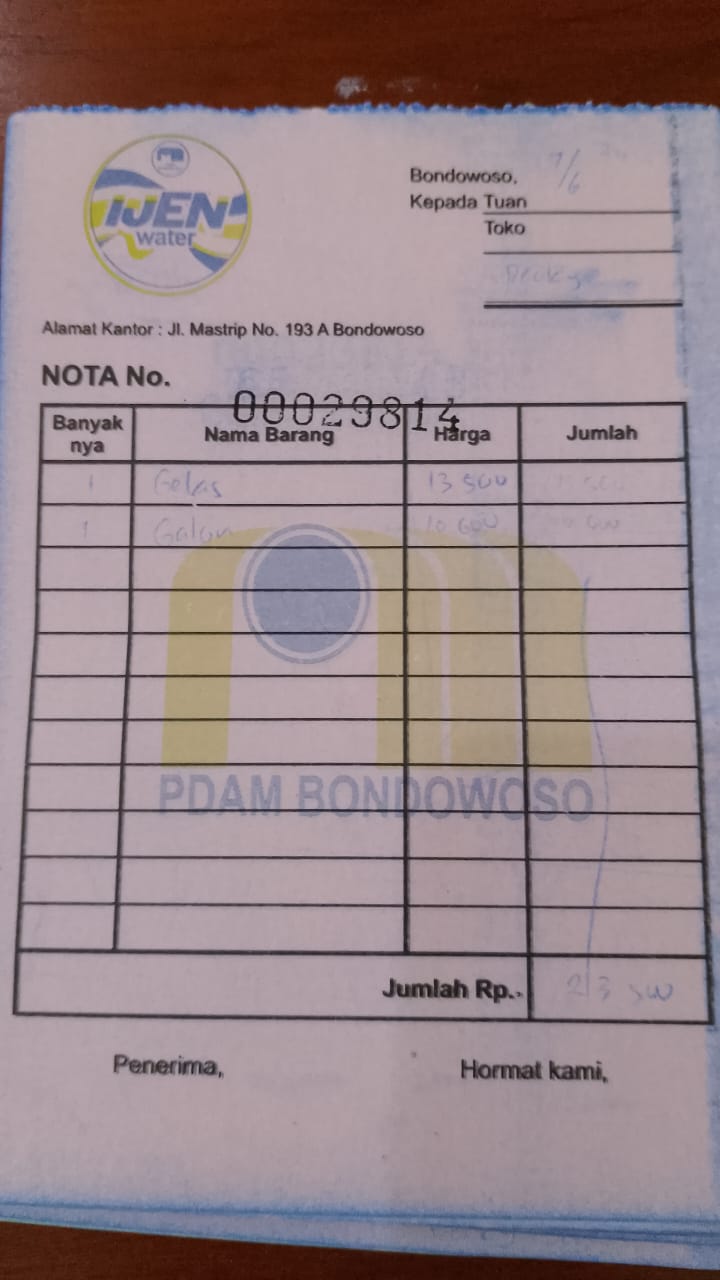 IJEN
water
Bondowoso, 7/6
Kepada Tuan
Toko
Alamat Kantor : Jl. Mastrip No. 193 A Bondowoso
NOTA No.
00029814
Banyak nya Nama Barang Harga Jumlah
1 Gelas 13 500
1 Galon 10 000
PDAM BONDOWOSO
Jumlah Rp.. 23 500
Penerima, Hormat kami,